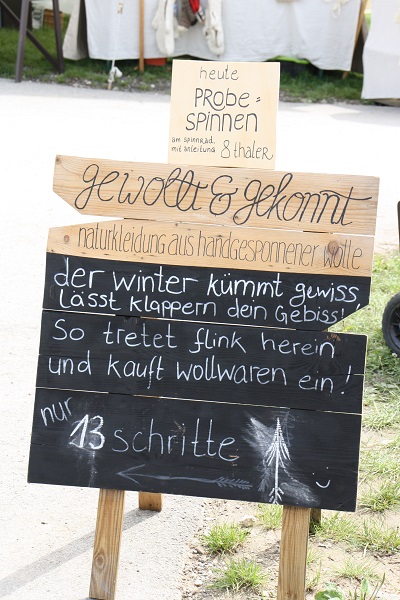 heute
PROBE=
SPINNEN
am spinnrad,
mit anleitung 8 thaler
gewollt & gekonnt
naturkleidung aus handgesponnener wolle
der winter kümmt gewiss,
lässt klappern dein Gebiss!
So tretet flink herein
und kauft wollwaren ein!
nur
13 schritte